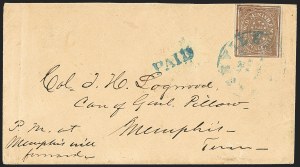 PAID
Col. T. H. Logwood
Care of Genl. Pillow
Memphis
Tenn
P.M. at
Memphis will
forward